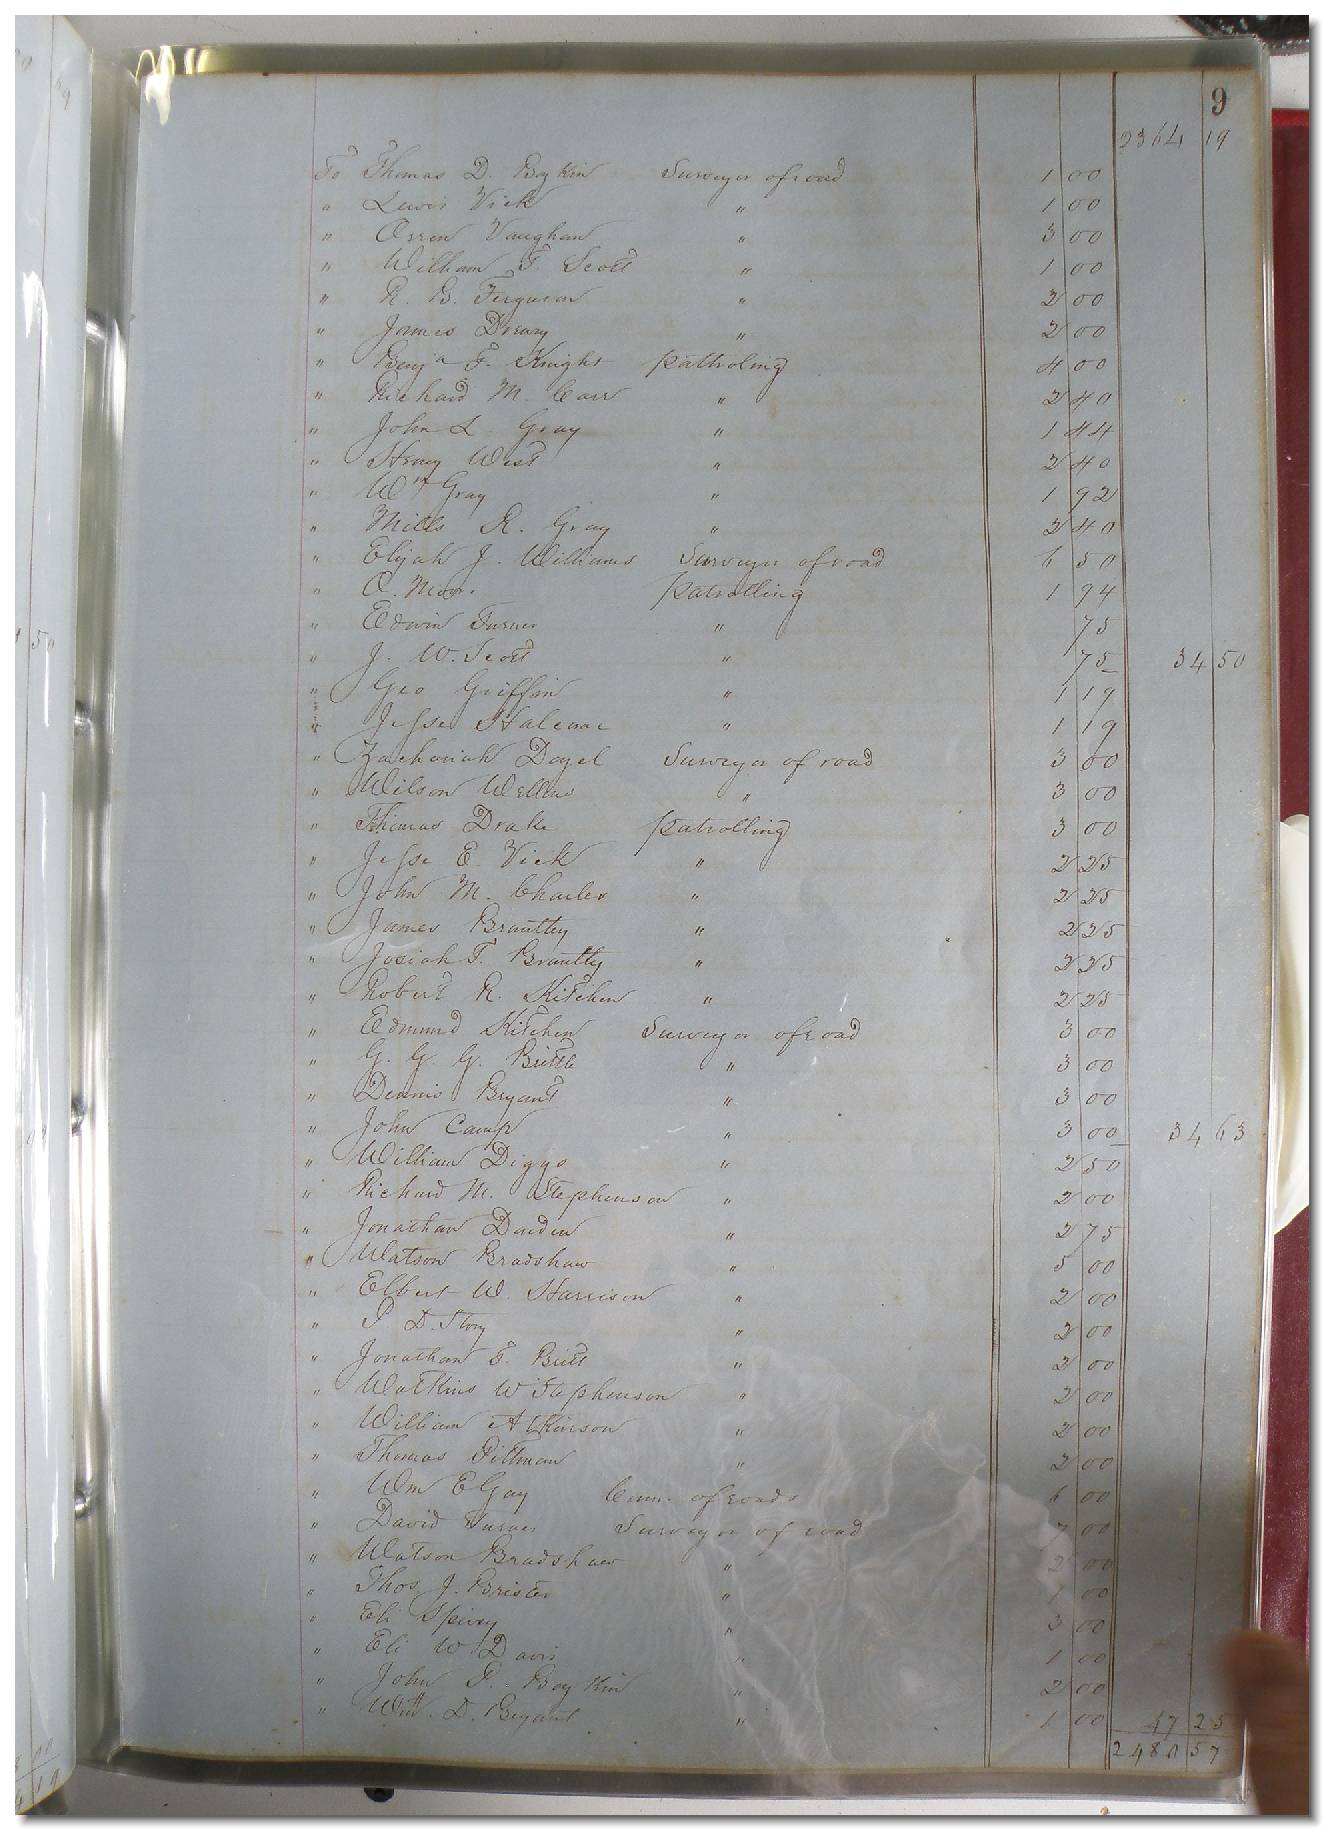 9
2364 19
To Thomas D. Boykin Surveyor of road 1 00
" Lewis Vick " 1 00
" Orren Vaughan " 3 00
" William T. Scott " 1 00
" R. B. Ferguson " 2 00
" James Drewry " 2 00
" Benja F. Knight patholing 4 00
" Richard M. Carr " 2 40
" John L. Gray " 1 44
" Henry West " 2 40
" Wm Gray " 1 92
" Mills R. Gray " 2 40
" Elijah J. Williams Surveyor of road 6 50
" O. patrolling 1 94
" Edwin Turner " 75
" J. W. Scott " 75 34 50
" Geo Griffin " 1 19
" Jesse Holcome " 1 19
" Zachariah Doyel Surveyor of road 3 00
" Wilson Wellons " 3 00
" Thomas Drake patrolling 3 00
" Jesse E. Vick " 2 25
" John M. Charles " 2 25
" James Brantley " 2 25
" Josiah T. Brantly " 2 25
" Robert R. Kitchen " 2 25
" Edmund Kitchen Surveyor of road 3 00
" G. G. G. Brittle " 3 00
" Dennis Bryant " 3 00
" John Camp " 3 00 34 63
" William Diggs " 2 50
" Richard M. Stephenson " 2 00
" Jonathan Darden " 2 75
" Watson Bradshaw " 5 00
" Elbert W. Harrison " 2 00
" D. Story " 2 00
" Jonathan E. Britt " 2 00
" Watkins W Stephenson " 2 00
" William Atkinson " 2 00
" Thomas Pittman " 2 00
" Wm E Gay Com. of roads 6 00
" David Turner Surveyor of road 00
" Watson Bradshaw " 2 00
" Thos J. Brister " 1 00
" Eli Spivey " 3 00
" Eli W Davis " 1 00
" John P. Boykin " 2 00
" Wm. D. Bryant " 1 00 47 25
2480 57